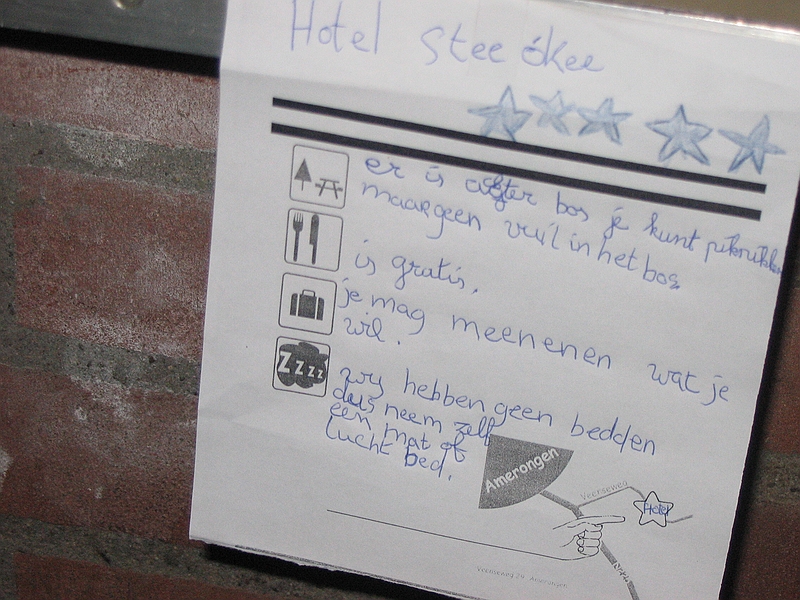 Hotel Stee ókee
er is achter bos je kunt piknikken
maar geen vuil in het bos
is gratis.
je mag meenenen wat je
wil.
Zzzz
wy hebben geen bedden
dus neem zelf
een mat of
lucht bed.
Amerongen
Veenseweg
Hotel
Veenseweg 29 Amerongen